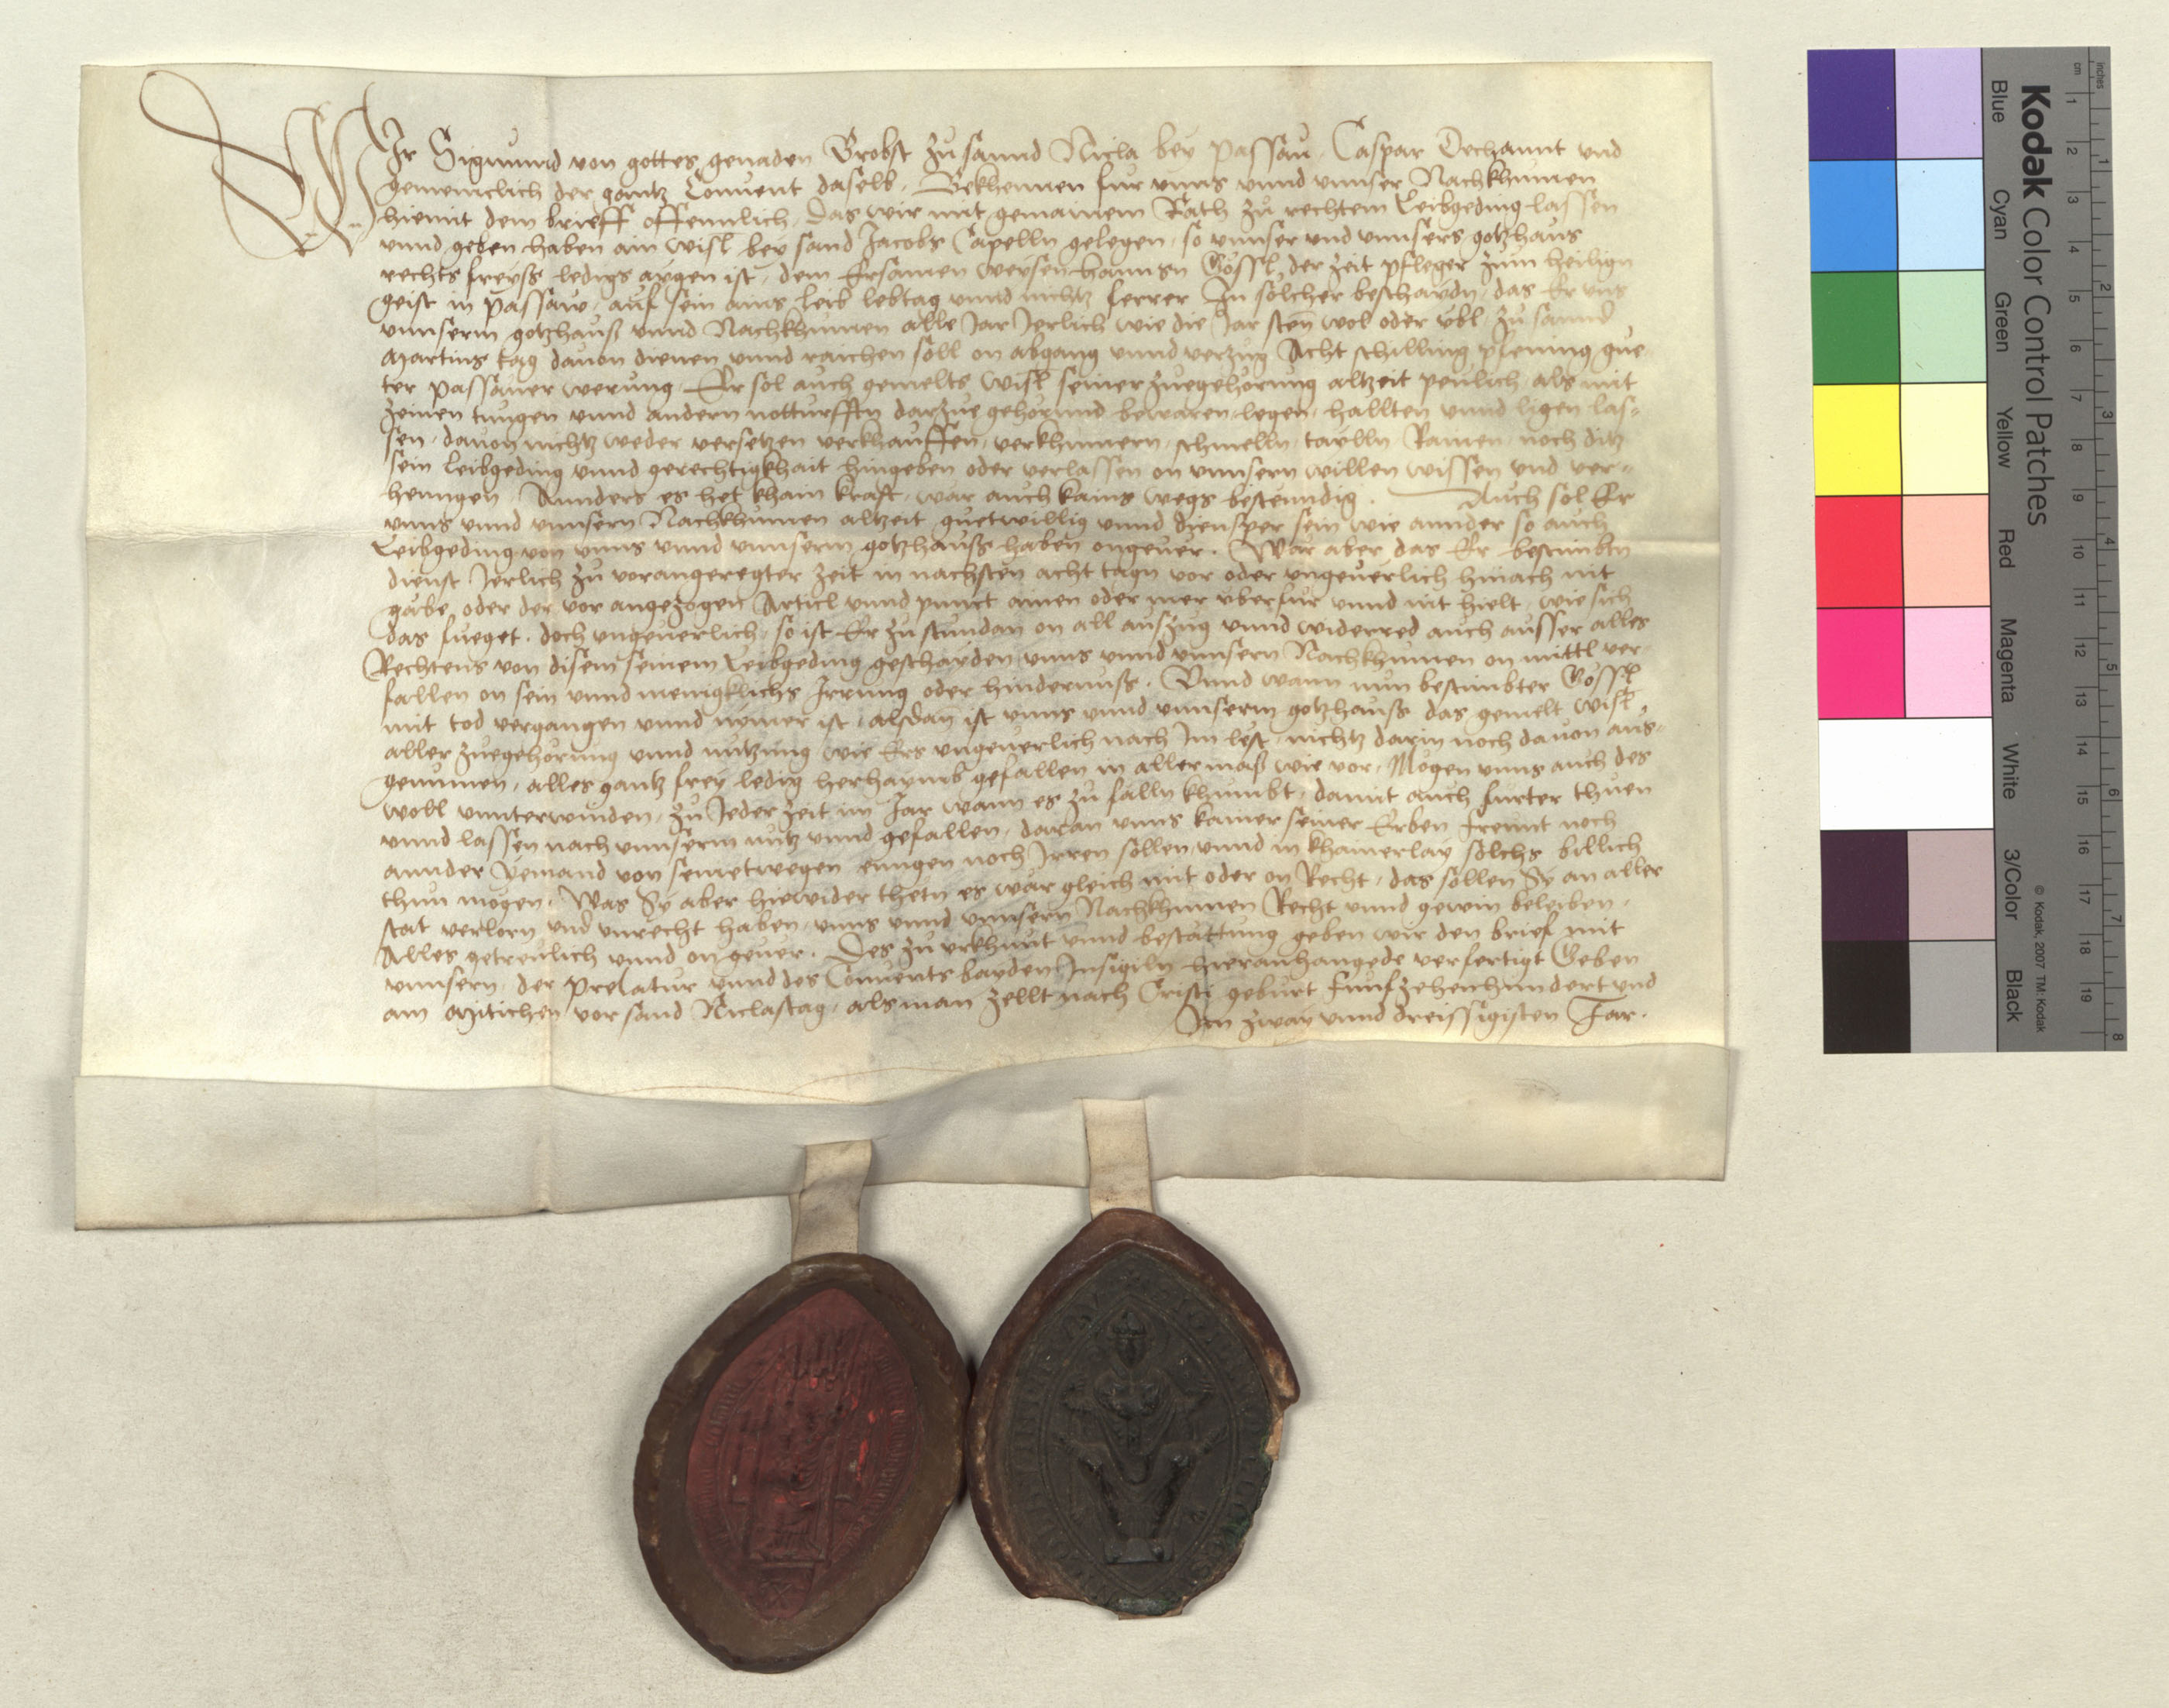 WIr Sigmund von gottes genaden Brobst zu sannd Nicla bey passau, Caspar Dechannt vnd
gemeinclich der ganntz Convent daselb, Bekhennen fur vnns vnnd vnnser Nachkhumen
hiemit dem brieff offennlich, Das wir mit gemainem Rath zu rechtem Leibgeding lassen
vnnd geben haben ain wisl bey sand Jacobs Capelln gelegen, so vnnser vnd vnnsers gotzhaus
rechts freyß ledigs aygen ist, dem Ersamen weysen hannsn Gössl der zeit pfleger zum heilign
geist in passaw, auf sein ains leib lebtag vnnd nichtz ferrer In solcher beschaydn, das Er vns
vnnserm gotzhauß vnnd Nachkhumen alle Jar Jerlich wie die Jar sten wol oder vbl, zu sannd
Martins tag dauon dienen vnnd raichen soll on abgang vnnd verzug Acht schilling pfening gue
ter passauer werung, Er sol auch gemelts wisl seiner zuegehorung altzeit peulich, als mit
zeinen tungen vnnd andern notturfftn darzue gehorund bewaren, legen, hallten vnnd ligen las-
sen, dauon nichtz weder versetzen verkhauffen, verkhumern, schmelln, taylln Ramen, noch ditz
sein leibgeding vnnd gerechtigkhait hingeben oder verlassen on vnnsern willen wissen vnd ver-
henngen, Annders es het khain kraft, war auch kains wegs bestenndig. Auch sol Er
vnns vnnd vnnsern Nachkhumen altzeit guetwillig vnnd diensper sein wie annder so auch
Leibgeding von vnns vnnd vnnserm gotzhauß haben ongeuer. War aber das Er bestimbtn
dienst Jerlich zu vorangeregter zeit in nachsten acht tagn vor oder vngeuerlich hinach nit
gäbe, oder der vor angezogen Articl vnnd punct ainen oder mer vberfur vnnd nit hielt, wie sich
das fueget, doch vngeuerlich, so ist Er zu stundan on all auszug vnnd widerred auch ausser alles
Rechtens von disem seinem Leibgeding geschayden vnns vnnd vnnsern Nachkhumen on mittl ver-
fallen on sein vnnd menigklichs Irrung oder hindernuß. Vnnd wann nun bestimbter Gössl
mit tod vergangen vnnd nymer ist, alsdan ist vnns vnnd vnnserm gotzhauß das gemelt wisl
aller zuegehorung vnnd nutzung wie Ers vngeuerlich nach Im lest, nichtz darin noch dauon aus-
genumen, alles gantz frey ledig herhaymb gefallen in aller maß wie vor, Mogen vnns auch des
woll vnnterwinden, zu Jeder zeit im Jar wann es zu falln khumbt, damit auch furter thuen
vnnd lassen nach vnnserm nutz vnnd gefallen, daran vnns kainer seiner Erben freunt noch
annder yemand von seinetwegen enngen noch Irren sollen, vnnd in khainerlay solchs billich
thun mogen, Was Sy aber hiewider thetn es war gleich mit oder on Recht, das sollen Sy an aller
stat verlorn vnd vnrecht haben, vnns vnnd vnnsern Nachkhumen Recht vnnd gewin beleiben,
Alles getreulich vnnd on geuer. Des zu vrkhunt vnnd bestattung geben wir den brief mit
vnnsern, der prelatur vnnd des Convents bayden Insigiln hieranhangede verfertigt Geben
am Mitichen vor sand Niclastag, als man zellt nach Cristi geburt funfzehenhundert vnd
Im zway vnnd dreissigisten Jar.
Kodak Color Control Patches
© Kodak, 2007 TM: Kodak
Blue Cyan Green Yellow Red Magenta White 3/Color Black
cm 1 2 3 4 5 6 7 8 9 10 11 12 13 14 15 16 17 18 19
inches 1 2 3 4 5 6 7 8